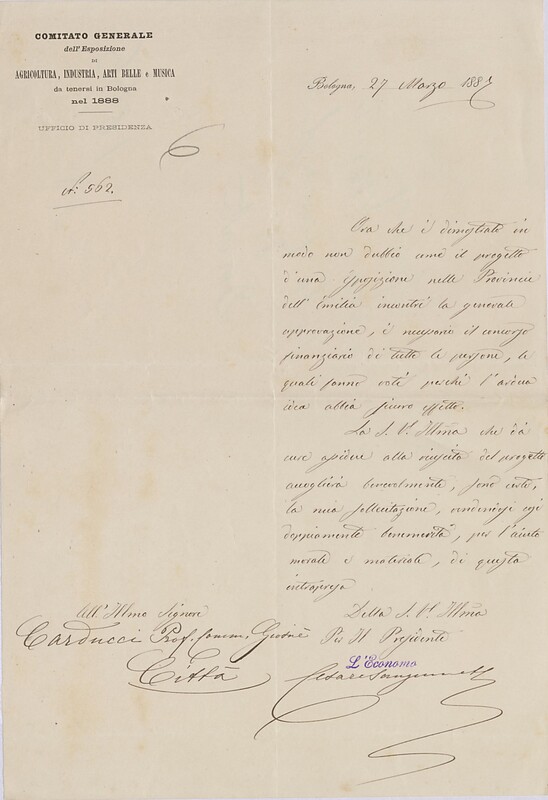 COMITATO GENERALE
dell'Esposizione
DI
AGRICOLTURA, INDUSTRIA, ARTI BELLE e MUSICA
da tenersi in Bologna
nel 1888
UFFICIO DI PRESIDENZA
Bologna, 27 Marzo 1887
N: 562.
Ora che è dimostrato in
modo non dubbio come il progetto
d'una Esposizione nelle Provincie
dell'Emilia incontri la generale
approvazione, è necessario il concorso
finanziario di tutte le persone, le
quali fanno voti perché l'ardua
idea abbia sicuro effetto.
La S. V. Illma che dà
opera alla riuscita del progetto
accoglierà benevolmente, sono certo,
la mia sollecitazione, rendendosi così
doppiamente benemerita, per l'aiuto
morale e materiale, di questa
intrapresa
Della S. V. Illma
Per Il Presidente
L'Economo
Cesare
All'Illmo Signore
Carducci Prof. Comm. Giosuè
Città